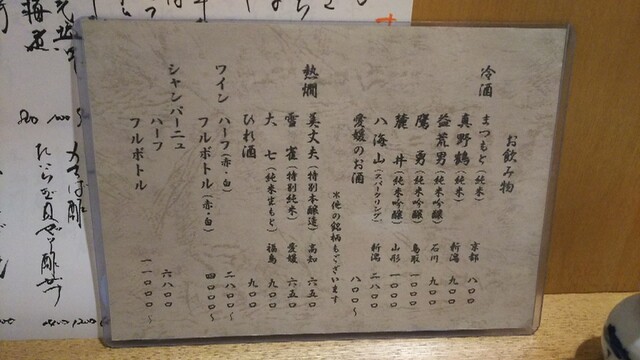 お飲み物
冷酒
まつもと(純米) 京都 八〇〇
真野鶴(純米) 新潟 九〇〇
益荒男(純米吟醸) 石川 九〇〇
鷹勇(純米吟醸) 鳥取 一〇〇〇
麓井(純米吟醸) 山形 一〇〇〇
八海山(スパークリング) 新潟 二八〇〇
愛媛のお酒 八〇〇〜
※他の銘柄もございます
熱燗
美丈夫(特別本醸造) 高知 六五〇
雪雀(特別純米) 愛媛 六五〇
大七(純米生もと) 福島 九〇〇
ひれ酒 九〇〇
ワイン ハーフ(赤・白) 二八〇〇〜
フルボトル(赤・白) 四〇〇〇〜
シャンパーニュ
ハーフ 六八〇〇
フルボトル 一一〇〇〇〜